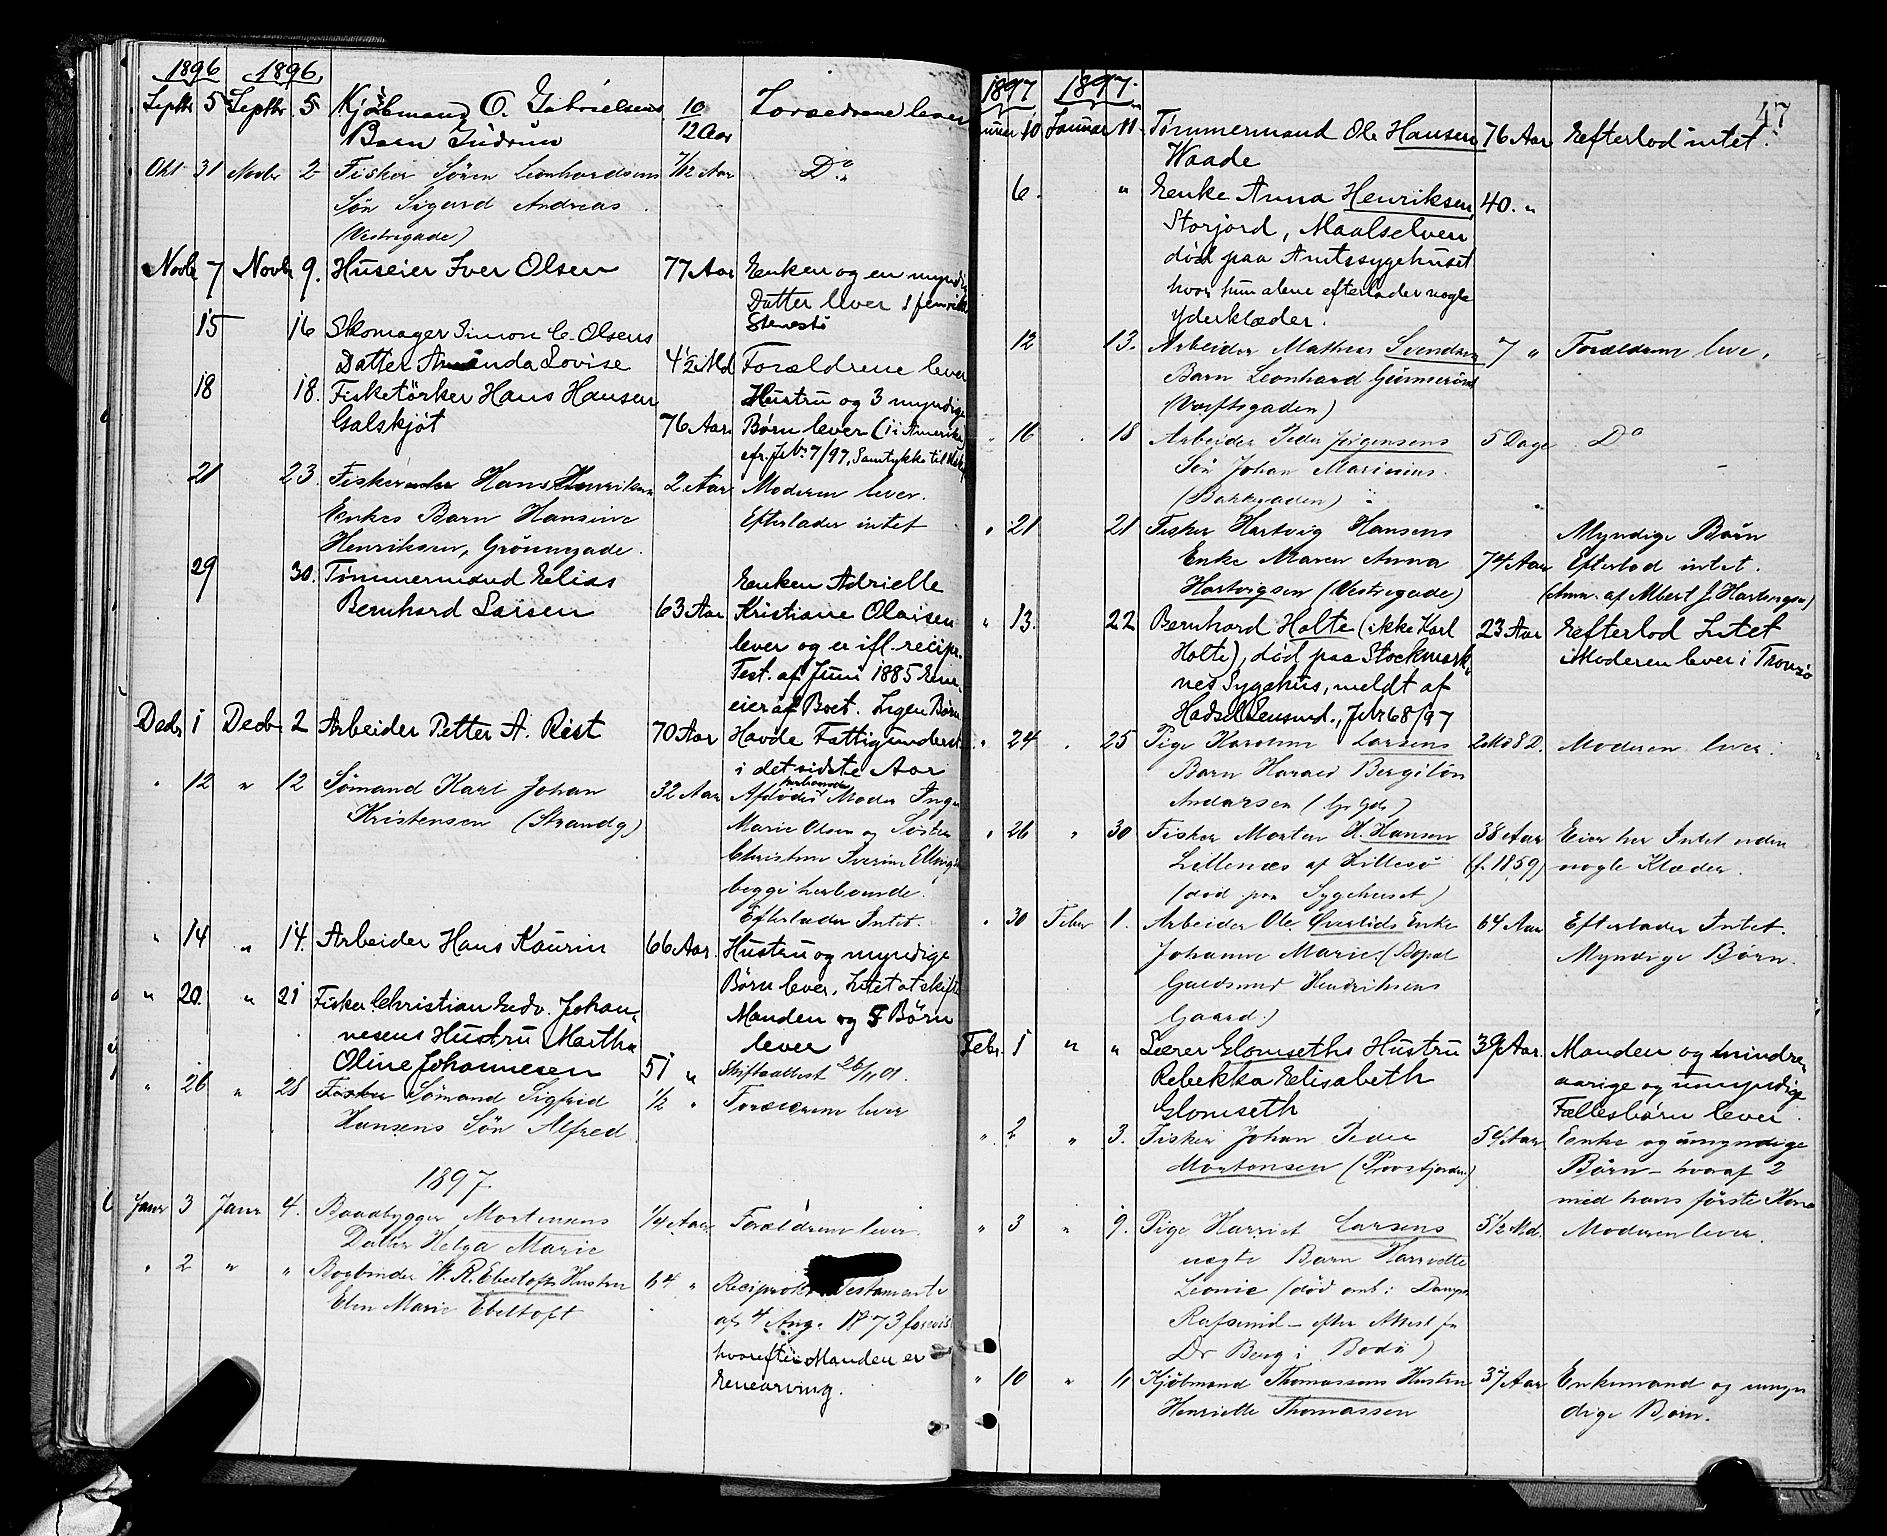 1896 1896.
Septbr 5 Septbr 5 Kjøbmand O. Gabrielsens 10/12 Aar Forældrene lever
Barn Gudrun
Okt 31 Novbr 2 Fisker Sören Leonhardsens 7/12 Aar Do
Søn Sigurd Andreas
(Vestregade)
Novbr 7 Novbr 9. Huseier Iver Olsen 77 Aar Enken og en myndig
Datter lever
15 16 Skomager Simon C. Olsens
Datter Amanda Lovise 4 1/2 Md Forældrene lever
18 18. Fisketörker Hans Hansen Hustru og 3 myndige
Galskjöt 76 Aar Børn lever (1 i Amerika)
cfr. Jr. No 7/97, Samtykke til
21 23. Fisker Hans Henriksen 2 Aar Moderen lever.
Enkes Barn Hansine Efterlader intet
Henriksen, Grönnegade.
29 30. Tömmermand Elias Enken Adrielle
Bernhard Larsen 63 Aar Kristiane Olaisen
lever og er ifl. recipr.
Test. af Juni 1885 Ene-
eier af Boet. Ingen Børn
Decbr 1 Decbr 2 Arbeider Petter A. Rist 70 Aar Havde Fattigunderst.
i det sidste Aar
" 12 " 12 Sømand Karl Johan 32 Aar Afdødes Moder Inger
Kristensen (Strandg) Marie Olsen og Søster
begge herboende.
Efterlader Intet.
" 14 " 14. Arbeider Hans Kaurin 66 Aar Hustru og myndige
Børn lever, Intet at skifte
" 20. " 21 Fisker Christian Edv. Johan- Manden og 5 Børn
nesens Hustru Martha lever
Oline Johannesen 51 " Skifteattest 26/11 01.
" 26 " 28 Fisker Sømand Sigfrid 1/2 " Forældrene lever
Hansens Søn Alfred
1897.
Janr 3 Janr 4. Baadbygger Mortensens 1/4 Aar Forældrene lever.
Datter Helga Marie
" 2 " " Bogbinder W. R. Ebeltofts Hustru 64 " Reciprokt Testamente
Elen Marie Ebeltoft af 4 Aug. 1873 forevist
hvorefter Manden er
Enearving.
47
1897 1897.
Januar 10 Januar 11. Tømmermand Ole Hansen 76 Aar Efterlod intet.
Waade
6. " Enke Anna Henriksen, 40. "
Storjord, Maalselven
död paa Amtssygehuset
hvor hun alene efterlader nogle
Yderklæder.
12 13. Arbeider Mathias Svendsen 7 " Forældrene lever.
Barn Leonhard
(Værftsgaden)
" 16 . 18 Arbeider Peder Jørgensens 5 Dage Do
Søn Johan Marinius.
(Bakkegaden)
" 21 21 Fisker Hartvig Hansens Myndige Børn
Enke Maren Anna 74 Aar Efterlod intet.
Hartvigsen (Vestregade) (Anm. af Albert J. Hartvigsen)
" 13. 22 Bernhard Holte (ikke Karl 23 Aar Efterlod Intet
Holte), död paa Stockmark- Moderen lever i Tromsø
nes Sygehus, meldt af
Hadsel Lensmd., Jr 68/97
" 24 . 25 Pige Karoline Larsens 2 Md 8 D. Moderen lever.
Barn Harald Bergiton
Andersen
" 26 " 30 Fisker Morten H. Hansen 38 Aar Eier her Intet uden
Lillenæs af Hillesø (f. 1859) nogle Klæder.
(död paa Sygehuset)
" 30 Febr 1. Arbeider Ole Qvæilids Enke 64 Aar Efterlader Intet.
Johanne Marie. (Bopæl Myndige Børn.
Guldsmed Hendriksens
Gaard.)
Febr. 1 " " Lærer Glomseths Hustru 39 Aar. Manden og mindre-
Rebekka Elisabeth aarige og umyndige
Glomseth Fællesbørn lever.
" 2 " 3. Fisker Johan Peder 54 Aar. Enke og umyndige
Mortensen Børn – hvoraf 2
med hans första Kone
" 3 " 9. Pige Harriet Larsens 5 1/2 Md. Moderen lever.
uægte Barn Harriette
Leonie (död omb: Damps.
Rafsund – efter Attest fra
Dr Berg i Bodö)
" 10 " 11 Kjøbmand Thomassens Hustru 37 Aar Enkemand og umyn
Henriette Thomassen dige Børn.